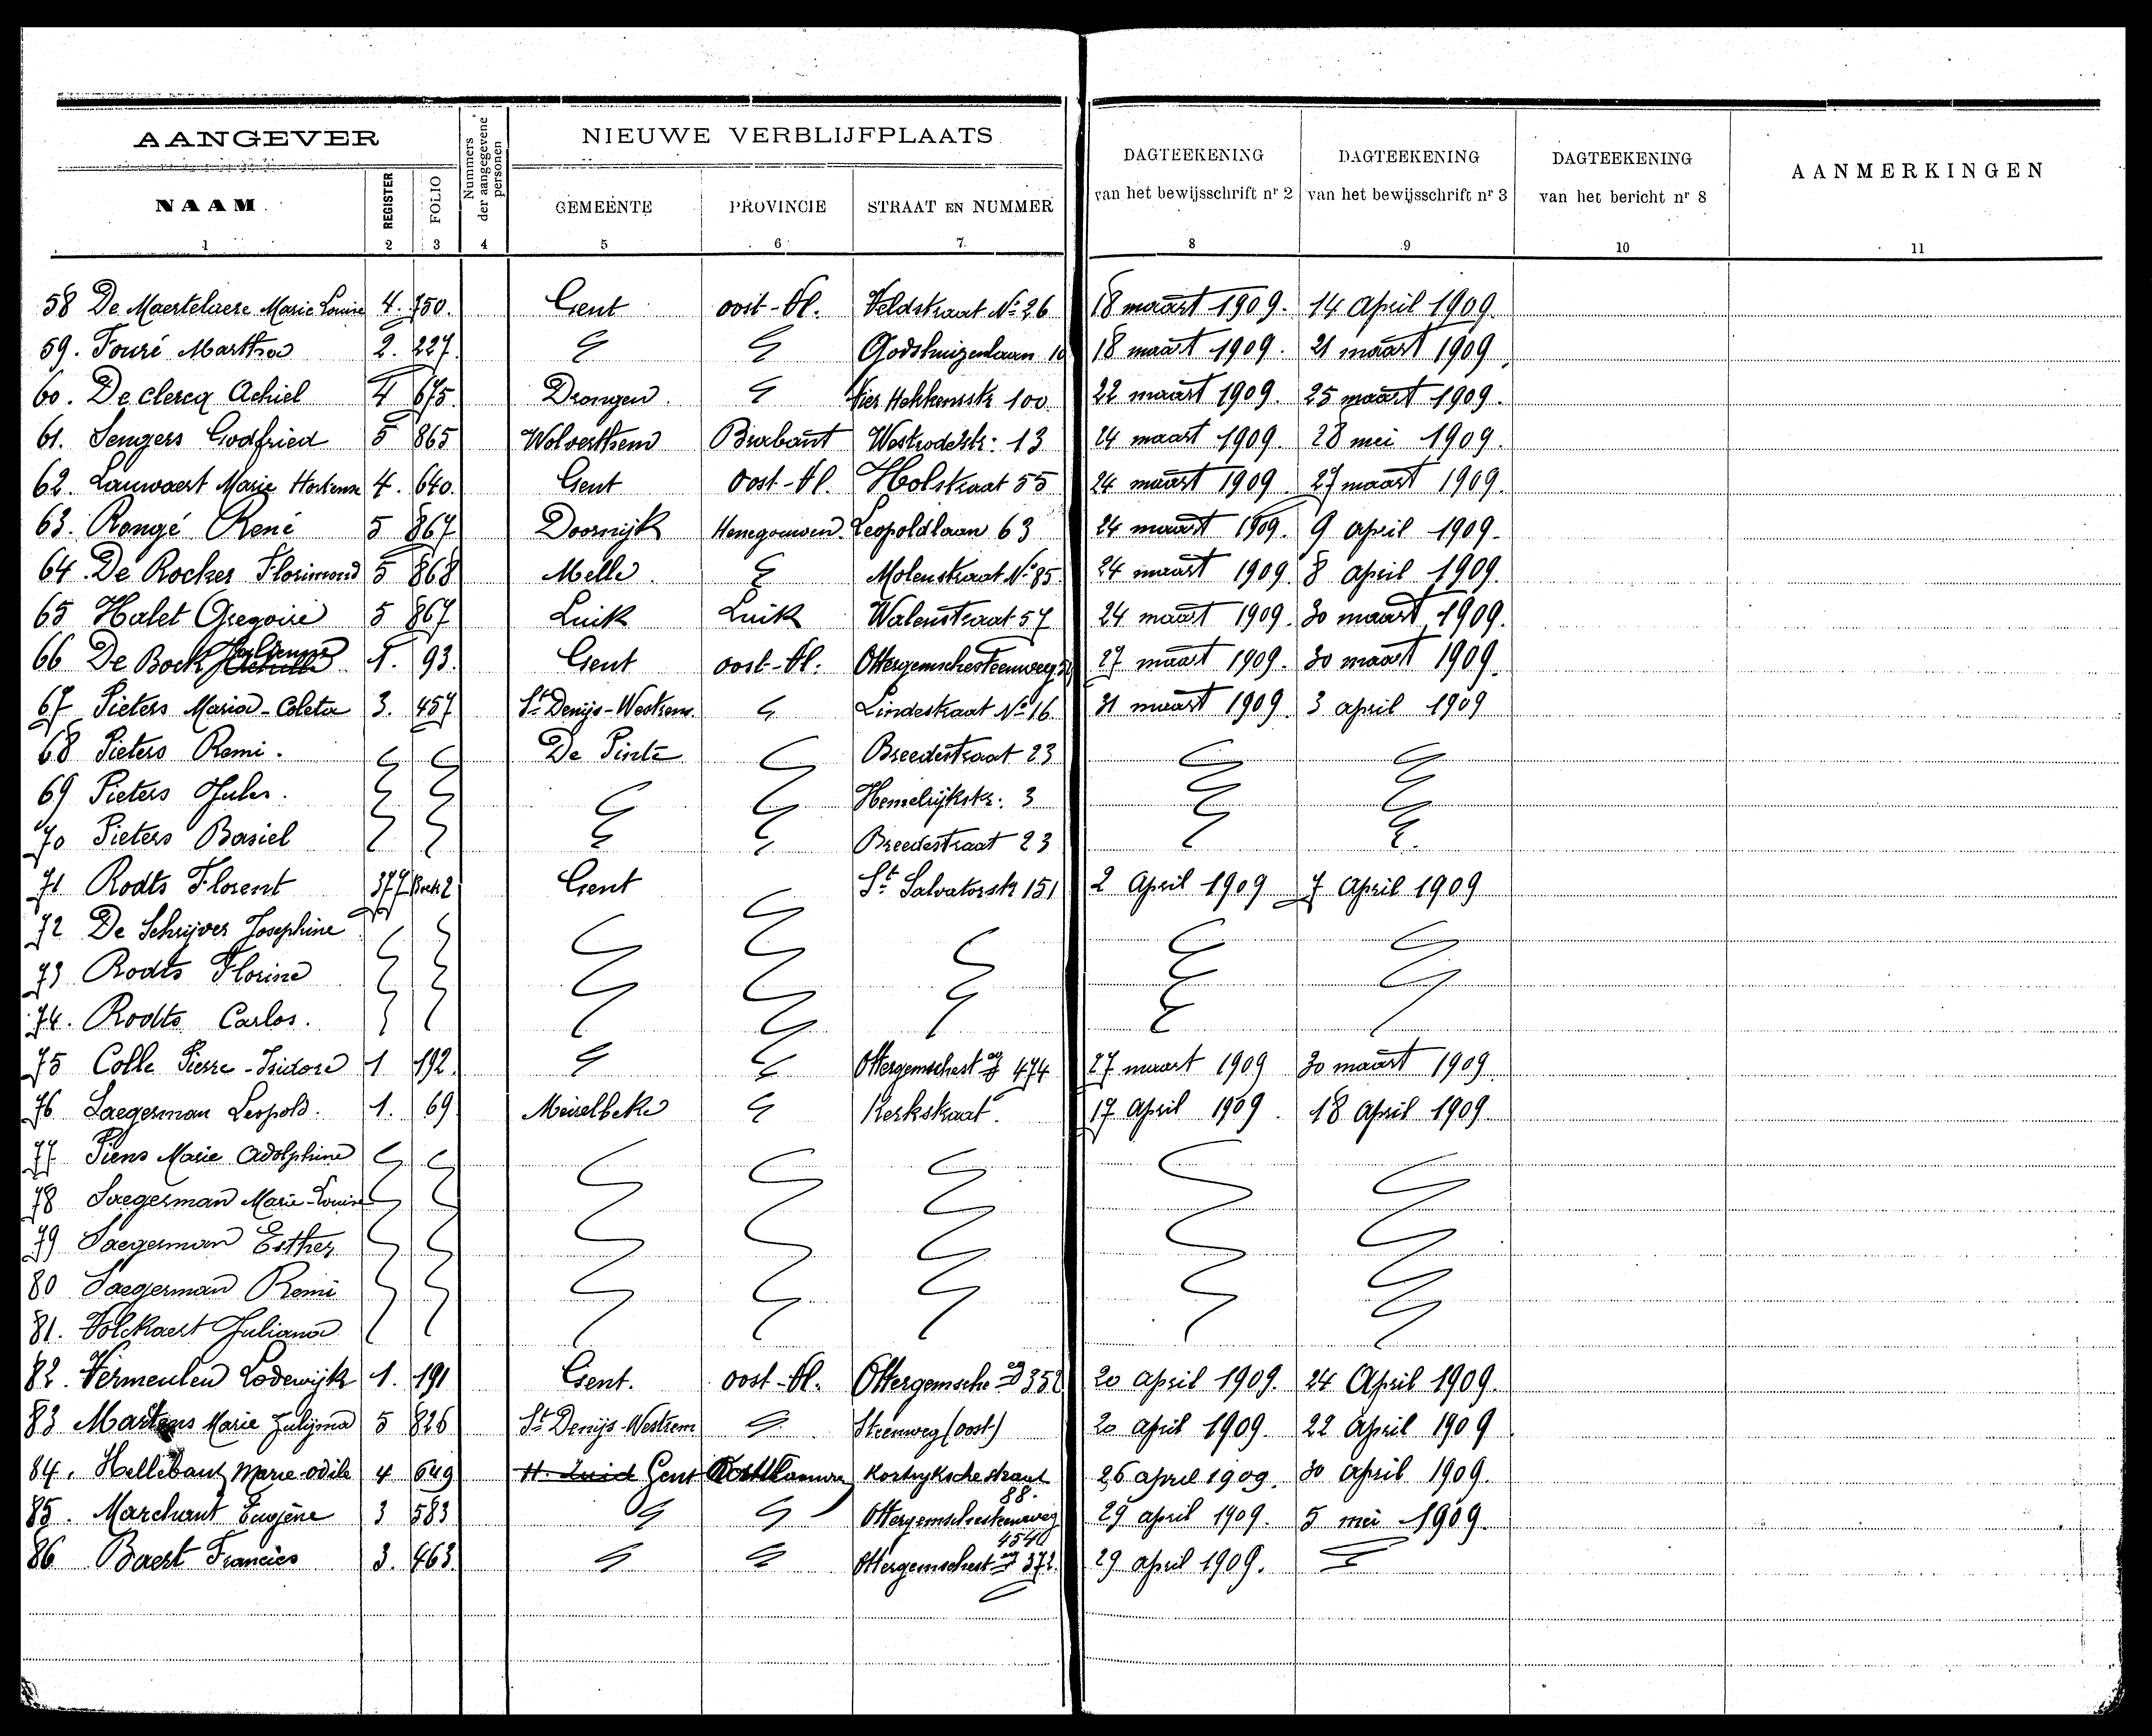 AANGEVER NIEUWE VERBLIJFPLAATS
NAAM REGISTER FOLIO Nummers der aangegevene personen GEMEENTE PROVINCIE STRAAT EN NUMMER DAGTEEKENING van het bewijsschrift nr 2 DAGTEEKENING van het bewijsschrift nr 3 DAGTEEKENING van het bericht nr 8 AANMERKINGEN
1 2 3 4 5 6 7 8 9 10 11
58 De Maertelaere Marie Louise 4. 750. Gent oost-Vl. Veldstraat No 26 18 maart 1909. 14 April 1909.
59. Fouré Martha 2. 227. Godshuizenlaan 18 maart 1909. 21 maart 1909.
60. De clercq Achiel 4 675. Drongen. Vier Hekkensstr 100 22 maart 1909. 25 maart 1909.
61. Sengers Godfried 5 865 Wolverthem Brabant Westrodestr: 13 24 maart 1909. 28 mei 1909.
62. Lauwaert Marie Hortense 4. 640. Gent Oost-Vl. Holstraat 55 24 maart 1909. 27 maart 1909.
63. Rongé René 5 867 Doornijk Henegouwen. Leopoldlaan 63 24 maart 1909. 9 april 1909.
64 De Rocker Florimond 5 868 Melle. Molenstraat No 85. 24 maart 1909. 8 april 1909.
65 Halet Gregoire 5 867 Luik Luik Walenstraat 57 24 maart 1909. 30 maart 1909.
66 De Bock 1. 93. Gent oost-Vl. Ottergemschesteenweg 27 maart 1909. 30 maart 1909.
67 Pieters Maria-Coleta 3. 457 St Denijs-Westrem. Lindestraat No 16. 31 maart 1909. 3 april 1909
68 Pieters Remi. De Pinte Breedestraat 23
69 Pieters Jules. Hemelrijkstr: 3
70 Pieters Basiel Breedestraat 23
71 Rodts Florent 377 Boek 2 Gent St Salvatorstr 151 2 April 1909 7 April 1909
72 De Schrijver Josephine
73 Rodts Florine
74. Rodts Carlos.
75 Colle Pierre-Isidore 1 192. Ottergemschest eg 474 27 maart 1909 30 maart 1909
76 Saegerman Leopold. 1. 69 Meirelbeke Kerkstraat. 17 April 1909. 18 April 1909
77 Piens Marie Adolphine
78 Saegerman Marie-Louise
79 Saegerman Esther
80 Saegerman Remi
81. Volckaert Juliana
82. Vermeulen Lodewijk 1. 191 Gent. oost-Vl. Ottergemsche eg 352 20 april 1909. 24 April 1909.
83 Martens Marie Julijma 5 826 St Denijs-Westrem Steenweg (oost) 20 april 1909. 22 April 1909
84. Hellebaut Marie-odile 4 649 Gent Kortryksche straat 88. 26 april 1909. 30 april 1909.
85. Marchant Eugène 3 583 Ottergemschesteenweg 29 april 1909. 5 mei 1909.
86 Baert Francies 3. 463. Ottergemschest eg 372. 29 april 1909.